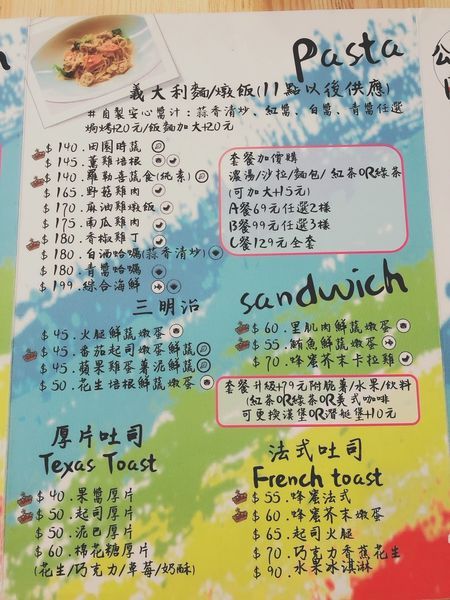 Pasta
義大利麵/燉飯(11點以後供應)
#自製安心醬汁:蒜香清炒、紅醬、白醬、青醬任選
焗烤+20元/飯麵加大+20元
$140.田園時蔬
$145.薰雞培根
$140.羅勒喜蔬食(純素)
$165.野菇雞肉
$170.麻油雞燉飯
$175.南瓜雞肉
$180.香椒雞丁
$180.白酒蛤蠣(蒜香清炒)
$180.青醬蛤蠣
$199.綜合海鮮
套餐加價購
濃湯/沙拉/麵包/紅茶OR綠茶
(可加大+15元)
A餐69元任選2樣
B餐99元任選3樣
C餐129元全套
三明治
sandwich
$45.火腿鮮蔬嫩蛋
$45.番茄起司鮮蔬嫩蛋
$45.蘋果雞蛋薯泥鮮蔬
$50.花生培根鮮蔬嫩蛋
$60.里肌肉鮮蔬嫩蛋
$55.鮪魚鮮蔬嫩蛋
$70.蜂蜜芥末卡拉雞
套餐升級+79元附脆薯/水果/飲料
(紅茶OR綠茶OR美式咖啡
可更換漢堡OR潛艇堡+10元
厚片吐司
Texas Toast
$40.果醬厚片
$50.起司厚片
$50.泥巴厚片
$60.棉花糖厚片
(花生/巧克力/草莓/奶酥)
法式吐司
French toast
$55.蜂蜜法式
$60.蜂蜜芥末嫩蛋
$65.起司火腿
$70.巧克力香蕉花生
$90.水果冰淇淋